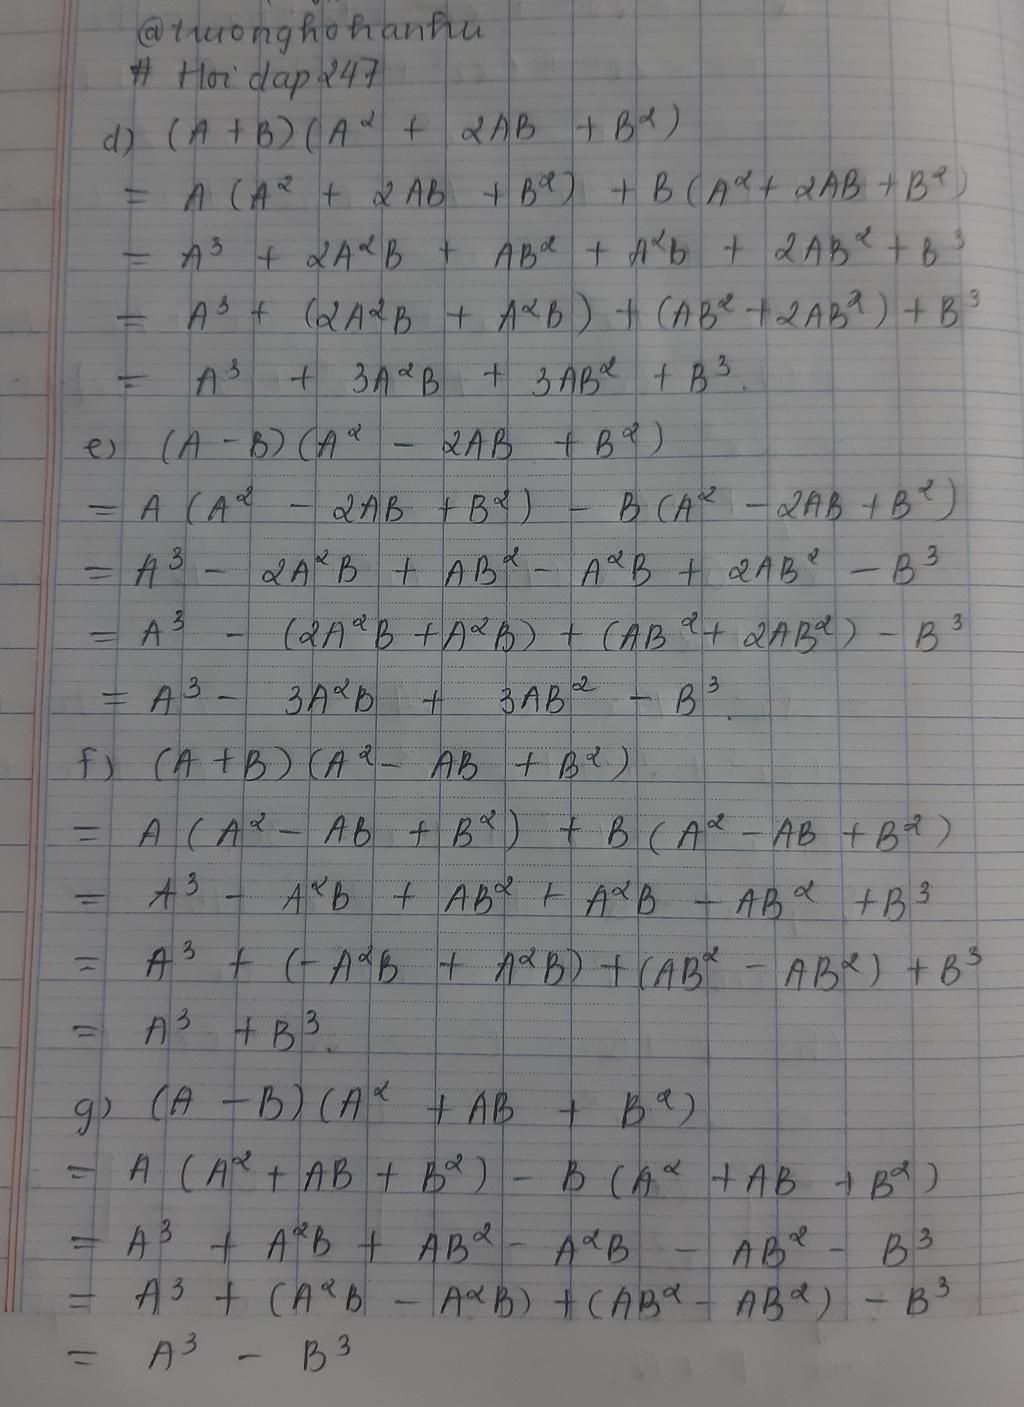 @truonghohanhu
# Hoi dap 247
d) (A + B) (A² + 2AB + B²)
= A (A² + 2AB + B²) + B (A² + 2AB + B²)
= A³ + 2A²B + AB² + A²B + 2AB² + B³
= A³ + (2A²B + A²B) + (AB² + 2AB²) + B³
= A³ + 3A²B + 3AB² + B³.
e) (A - B) (A² - 2AB + B²)
= A (A² - 2AB + B²) - B (A² - 2AB + B²)
= A³ - 2A²B + AB² - A²B + 2AB² - B³
= A³ - (2A²B + A²B) + (AB² + 2AB²) - B³
= A³ - 3A²B + 3AB² - B³.
f) (A + B) (A² - AB + B²)
= A (A² - AB + B²) + B (A² - AB + B²)
= A³ - A²B + AB² + A²B - AB² + B³
= A³ + (- A²B + A²B) + (AB² - AB²) + B³
= A³ + B³.
g) (A - B) (A² + AB + B²)
= A (A² + AB + B²) - B (A² + AB + B²)
= A³ + A²B + AB² - A²B - AB² - B³
= A³ + (A²B - A²B) + (AB² - AB²) - B³
= A³ - B³